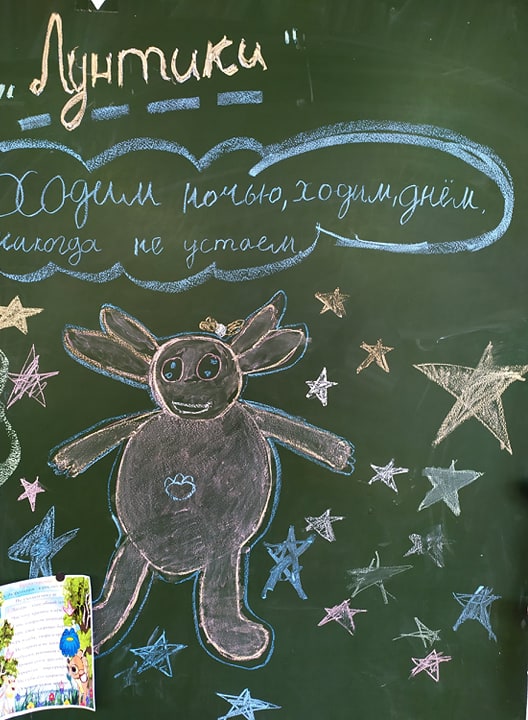 "Лунтики"
Ходим ночью, ходим, днём.
никогда не устаем